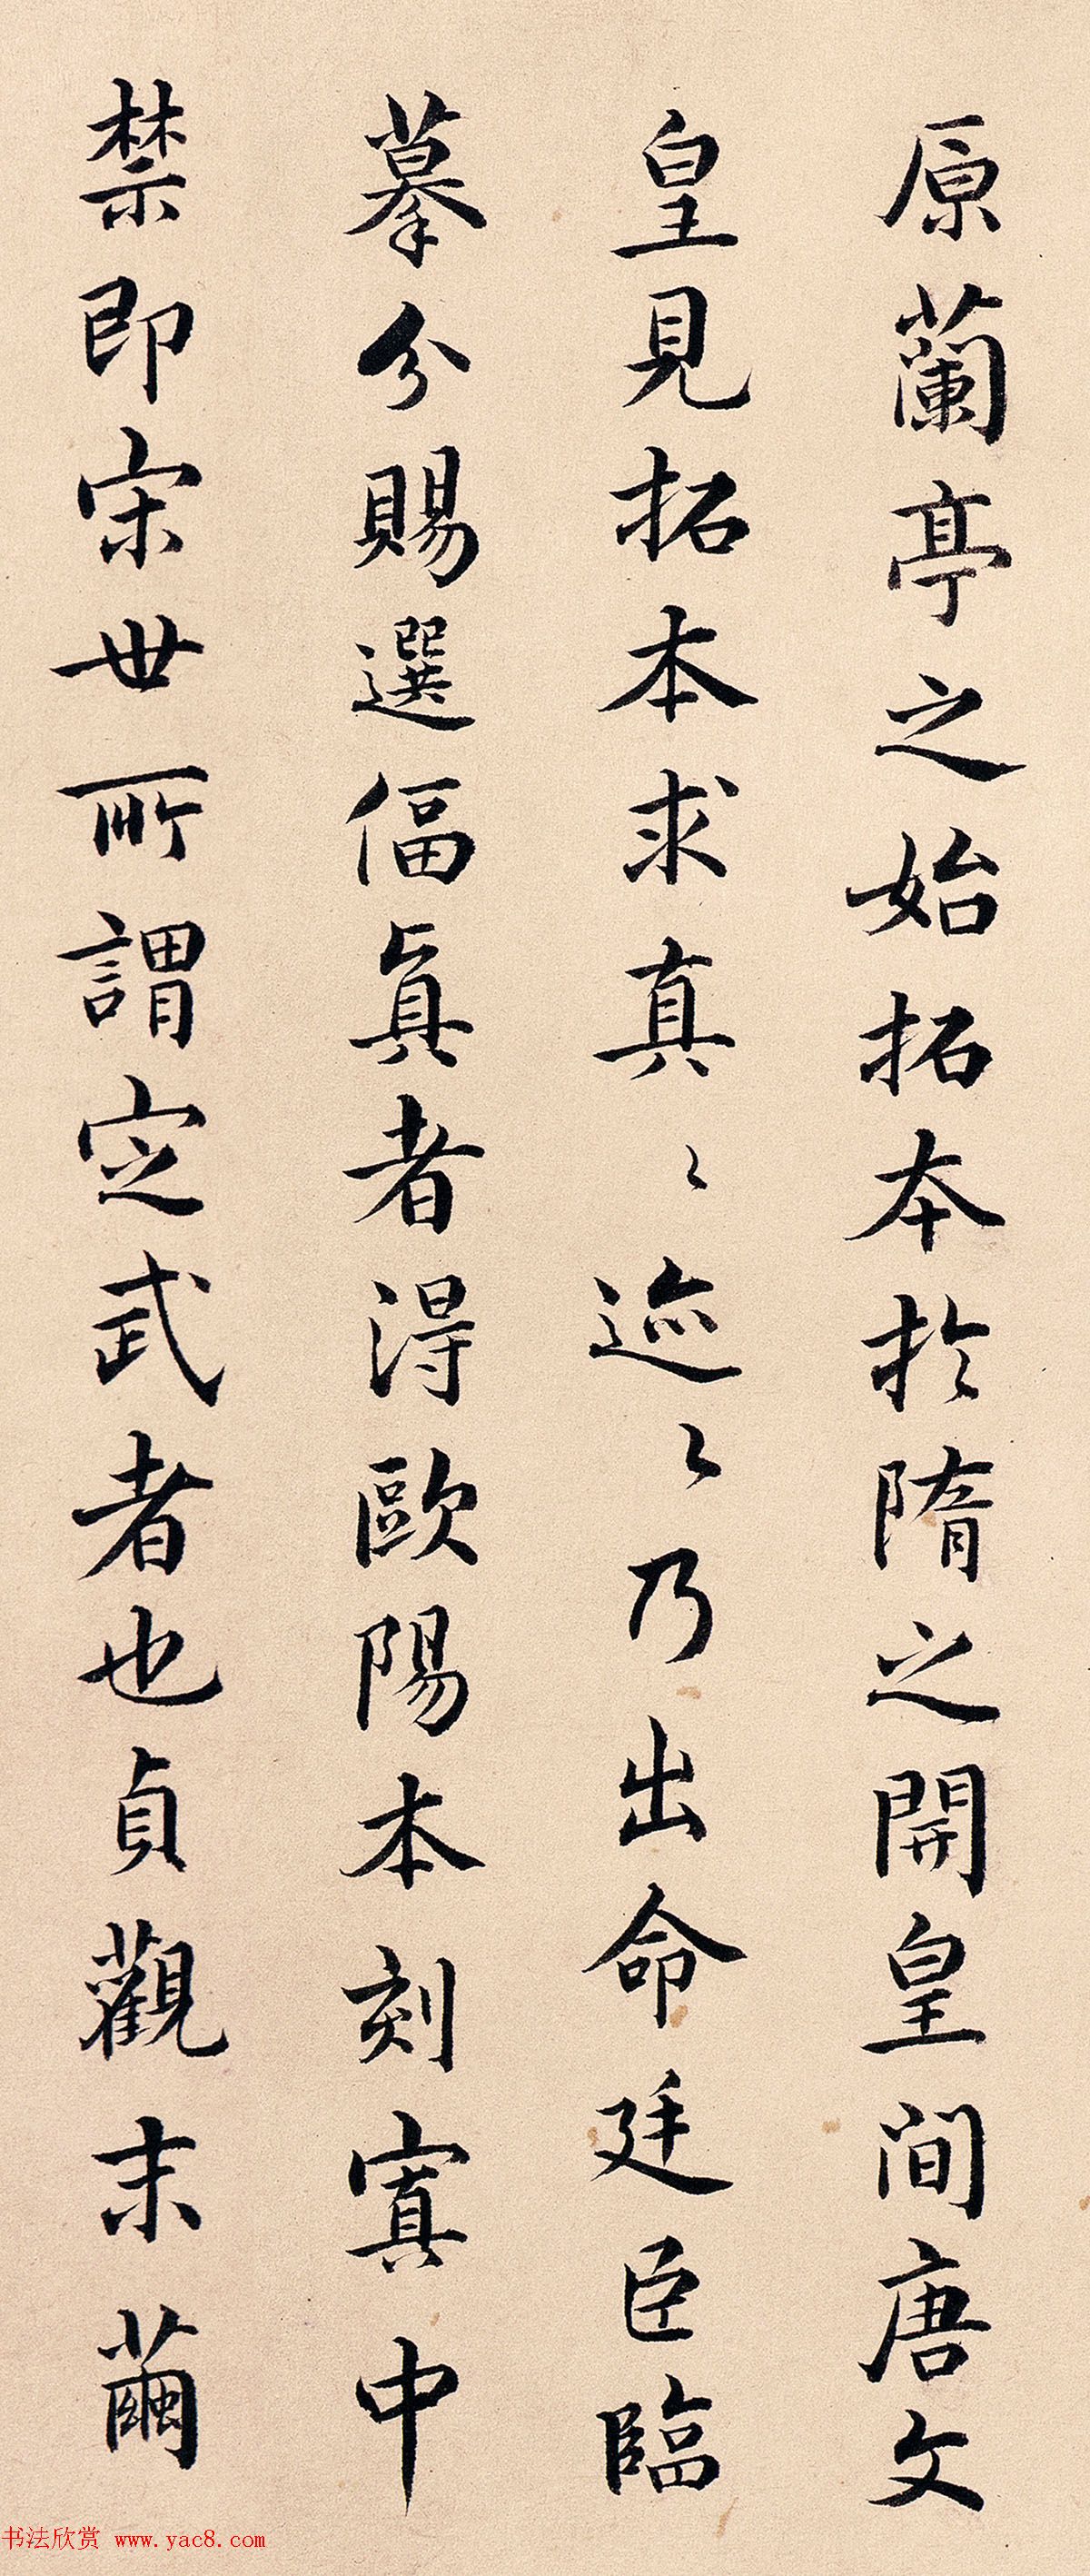 原蘭亭之始拓本於隋之開皇间唐文
皇見拓本求真〻迹〻乃出命廷臣臨
摹分賜選偪眞者得歐陽本刻寘中
禁即宋世所謂定武者也貞觀末繭
书法欣赏 www.yac8.com